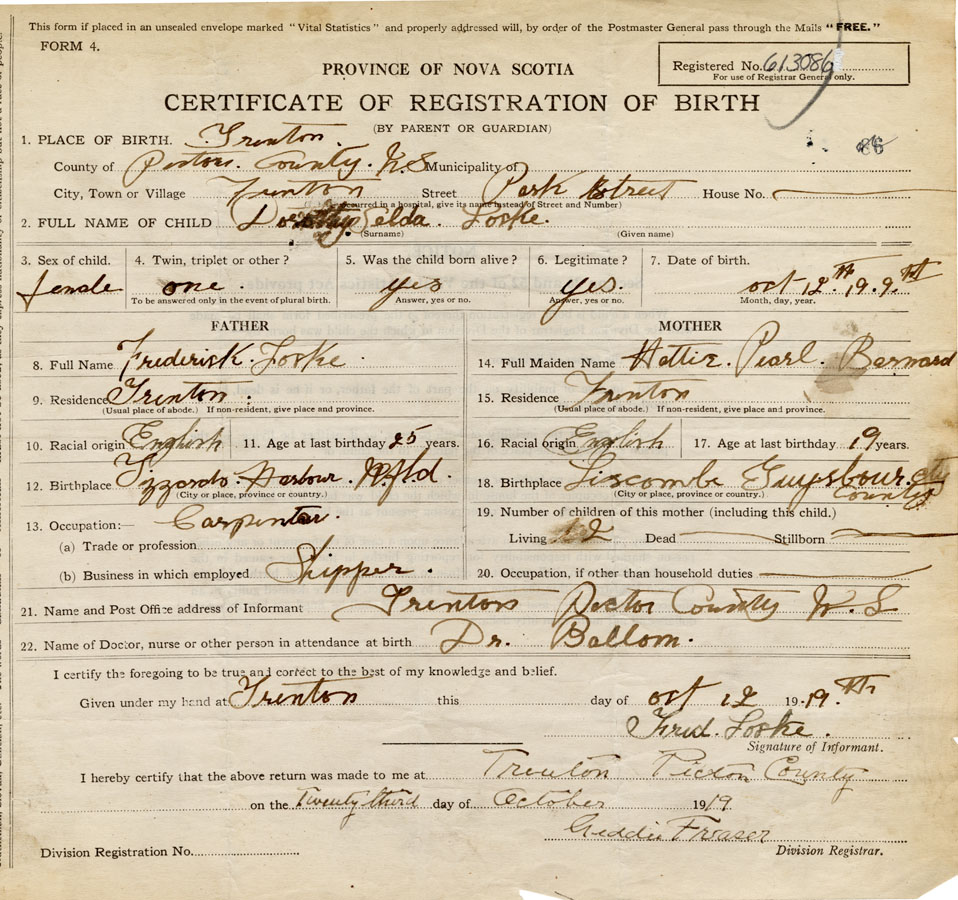 This form if placed in an unsealed envelope marked "Vital Statistics" and properly addressed will, by order of the Postmaster General pass through the Mails "FREE."
FORM 4.
Registered No. 613086
For use of Registrar General only.
PROVINCE OF NOVA SCOTIA
CERTIFICATE OF REGISTRATION OF BIRTH
(BY PARENT OR GUARDIAN)
1. PLACE OF BIRTH. Trenton
86
County of Pictou County. N.S Municipality of
City, Town or Village Trenton Street Park Street House No.
occurred in a hospital, give its name instead of Street and Number)
2. FULL NAME OF CHILD Dorothy Selda Loske.
(Surname) (Given name)
3. Sex of child. 4. Twin, triplet or other? 5. Was the child born alive? 6. Legitimate? 7. Date of birth.
female one. yes yes. oct 12th 19.9.th
To be answered only in the event of plural birth. Answer, yes or no. Answer, yes or no. Month, day, year.
FATHER MOTHER
8. Full Name Frederick. Loske 14. Full Maiden Name Hattie. Pearl. Bernard
9. Residence Trenton. 15. Residence Trenton
(Usual place of abode.) If non-resident, give place and province. (Usual place of abode.) If non-resident, give place and province.
10. Racial origin English 11. Age at last birthday 25 years. 16. Racial origin English 17. Age at last birthday 19 years.
12. Birthplace Harbour. Nfld. 18. Birthplace Liscombe Guysbour. County
(City or place, province or country.) (City or place, province or country.)
13. Occupation:— Carpenter. 19. Number of children of this mother (including this child.)
(a) Trade or profession Living 2 Dead Stillborn
(b) Business in which employed Shipper. 20. Occupation, if other than household duties
21. Name and Post Office address of Informant Trenton Pictor County N. S
22. Name of Doctor, nurse or other person in attendance at birth Dr. Ballom.
I certify the foregoing to be true and correct to the best of my knowledge and belief.
Given under my hand at Trenton this day of oct 12 19.19.th
Fred. Loske.
Signature of Informant.
I hereby certify that the above return was made to me at Trenton Pictou County
on the Twenty third day of October 1919
Geddie Fraser
Division Registration No. Division Registrar.